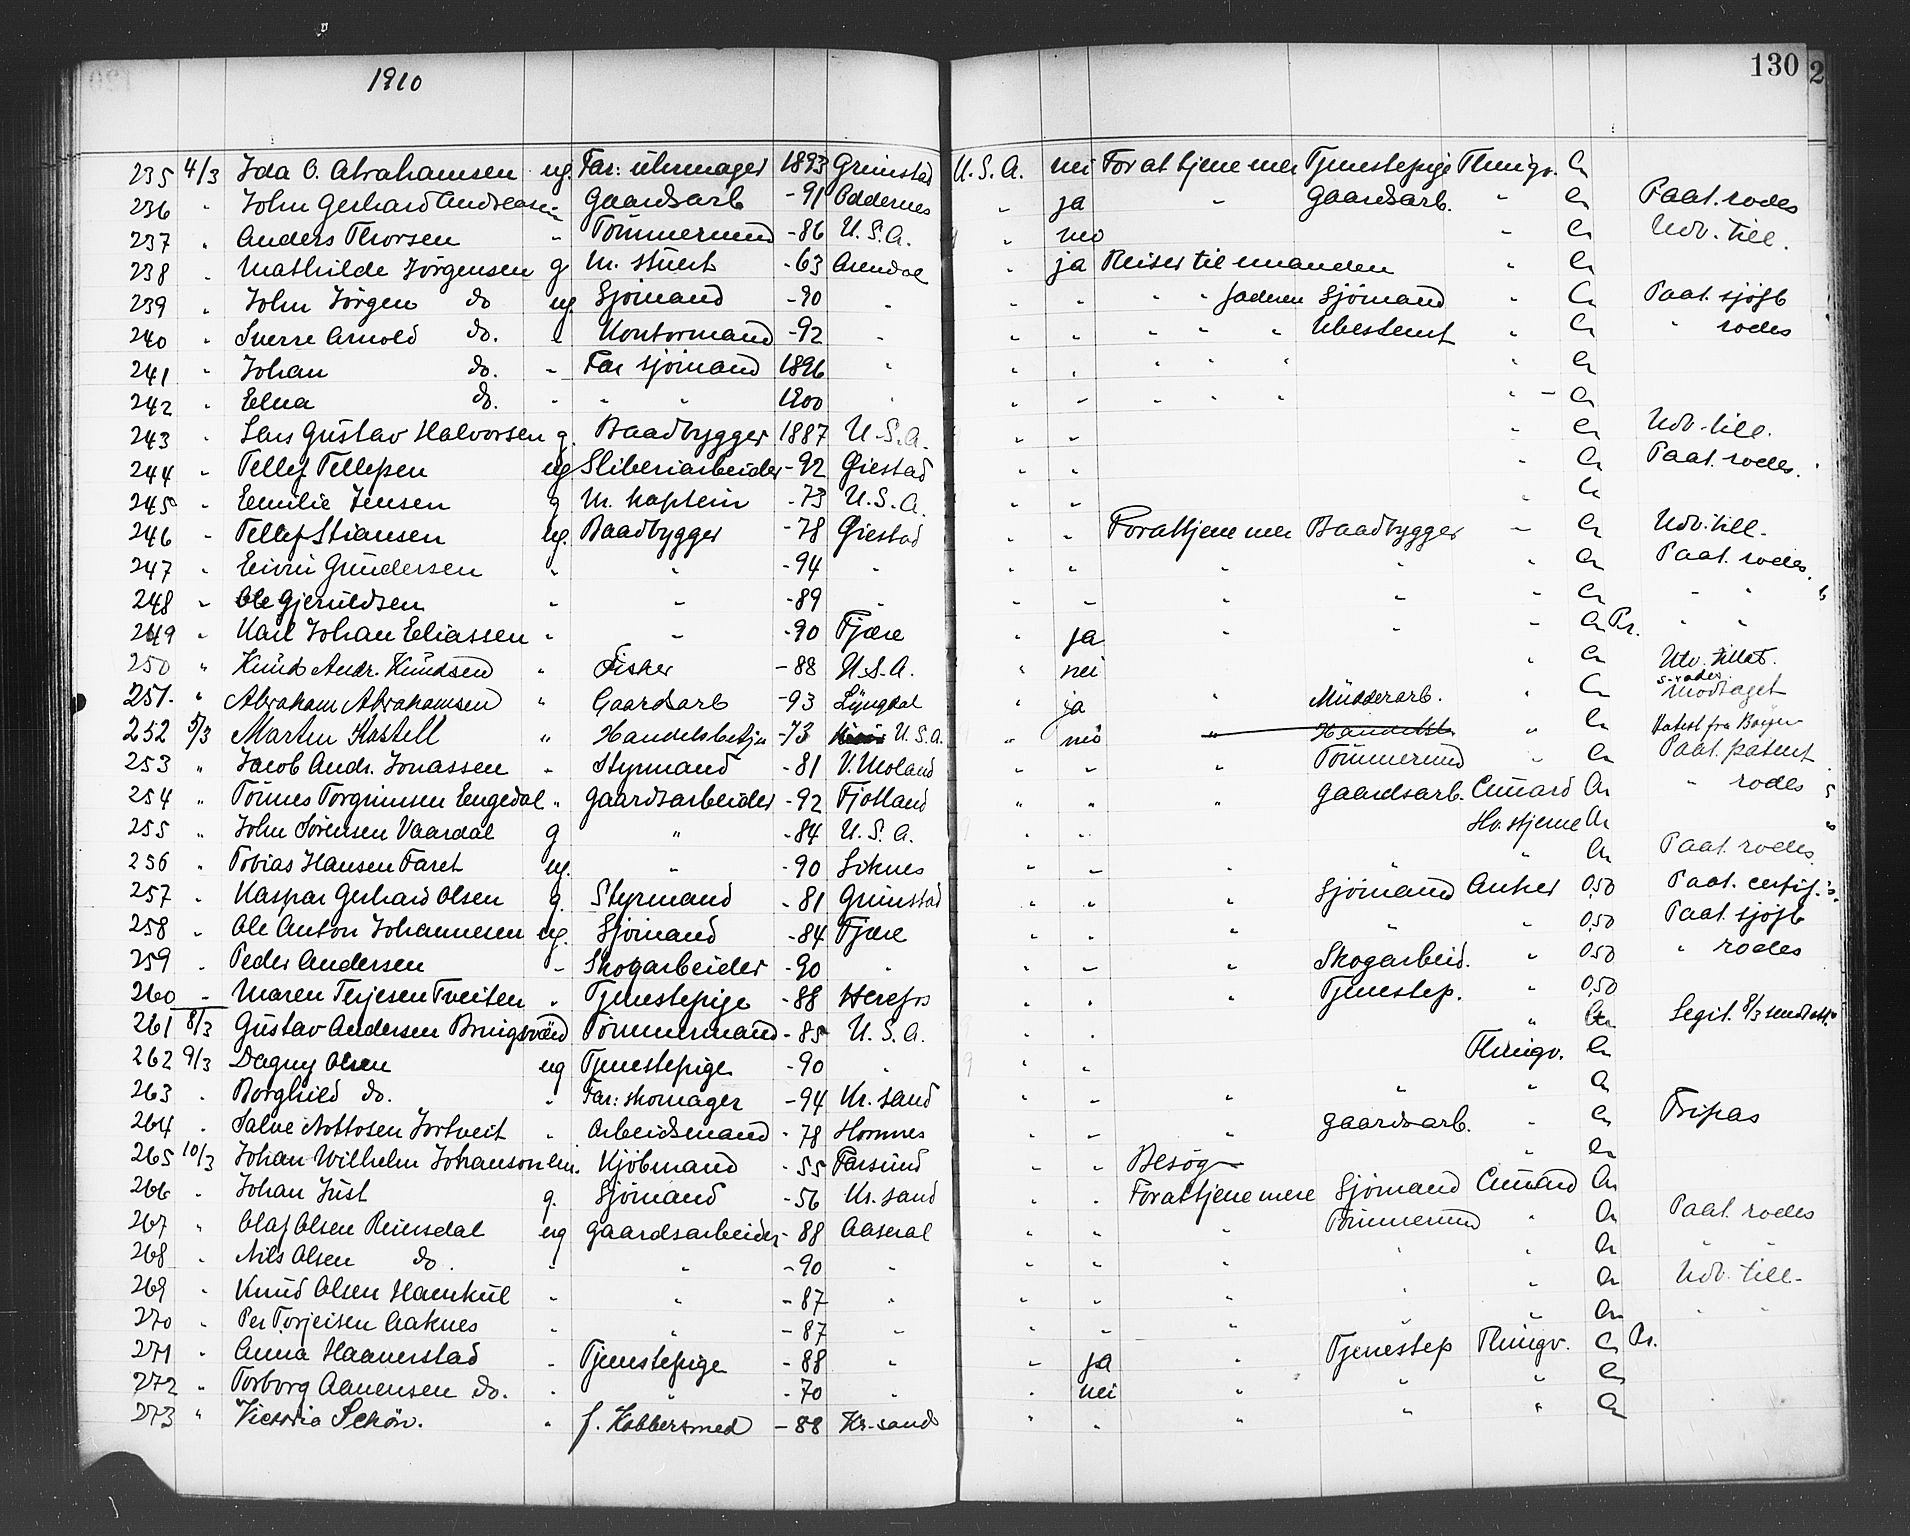 1910 130 2
235 4/3 Ida O. Abrahamsen ug. Far: uhrmager 1893 Grimstad U.S.A. nei For at tjene mer Tjenestepige Thingv. Cr
236 " John Gerhard Andreassen " Gaardsarb -91 Oddernes " ja " Gaardsarb. " Cr Paat. rodes
237 " Anders Thorsen " Tömmermand -86 U.S.A. " nei " Cr Udv. till.
238 " Mathilde Jörgensen g m. stuert -63 Arendal " ja Reiser til manden " Cr
239 " John Jörgen do ug. Sjömand -90 " " " " " faderen Sjömand " Cr Paat. sjöfb
240 " Sverre Arnold do. " Kontormand -92 " " " " " " Ubestemt " Cr " rodes
241 " Johan do. " Far sjömand 1896 " " " " " " " Cr
242 " Elna do. " " " 1900 " " " " " " " Cr
243 " Lars Gustav Halvorsen g. Baadbygger 1887 U.S.A. " " Cr Udv. till.
244 " Tellef Tellefsen ug Sliberiarbeider -92 Öiestad " " " Cr Paat. rodes.
245 " Emilie Jensen g m. kaptein -73 U.S.A. " " " Cr
246 " Tellef Stiansen ug. Baadbygger -78 Öiestad " " For at tjene mer Baadbygger " Cr Udv. till.
247 " Eivin Gundersen " " -94 " " " " " " Cr Paat. rodes.
248 " Ole Gjeruldsen " " -89 " " " " " " Cr " "
249 " Karl Johan Eliassen " " -90 Fjære " ja " " " Cr Pr. " "
250 " Knud Andr. Knudsen " Fisker -88 U.S.A. " nei " Cr Utv. tillat.
251. " Abraham Abrahamsen " Gaardsarb -93 Lyngdal " ja " Mudderarb. " Cr s. rodes. modtaget
252 5/3 Martin Kastell " Handelsbetj. -73 U.S.A. " nei " " Cr
253 " Jacob Andr. Jonassen " Styrmand -81 V. Moland " " " Tömmermd " Cr Paat. patent
254 " Tönnes Torgrimsen Eengedal " Gaardsarbeider -92 Fjotland " " " Gaardsarb. Cunard Cr " rodes
255 " John Sörensen Vaardal g " -84 U.S.A. " " Hv. stjerne Cr
256 " Tobias Hansen Faret ug. " -90 Söknes " " " " " Cr Paat. rodes
257 " Kaspar Gerhard Olsen g. Styrmand -81 Grimstad " " " Sjömand Anker 0,50 Paat. certif.
258 " Ole Anton Johannesen ug. Sjömand -84 Fjære " " " " " 0,50 Paat. sjöfb
259 " Peder Andersen " Skogarbeider -90 " " " " Skogarbeid. " 0,50 " rodes
260 " Maren Terjesen Tveiten " Tjenestepige -88 Herefos " " " Tjenestep. " 0,50
261 8/3 Gustav Andersen Bringsværd Tömmermand -85 U.S.A. " " " Cr Legit. 8/3
262 9/3 Dagny Olsen ug Tjenestepige -90 " Thingv. Cr
263 " Borghild do. " Far: skomager -94 Kr. sand " " " " " Cr
264 " Salve Nottosen Jortveit " Arbeidsmand -78 Homnes " " " Gaardsarb. " Cr Fripas
265 10/3 Johan Wilhelm Johanson em. Kjöbmand -55 Farsund " " Besög " Cr
266 " Johan Just g. Sjömand -56 Kr. sand " " For at tjene mere Sjömand Cunard Cr
267 " Olaf Olsen Reinsdal ug Gaardsarbeider -88 Aaseral " " " Tömmermd " Cr Paat. rodes
268 " Nils Olsen do. " " -90 " " " " " " Cr " "
269 " Knud Olsen Hamkul " " -87 " " " " " " Cr Udv. till.
270 " Per Torjeisen Aaknes " " -87 " " " " " " Cr " "
271 " Anna Haaverstad " Tjenestepige -88 " " ja " Tjenestep Thingv. Cr Pr.
272 " Torborg Aanensen do. " " -70 " " nei " " " Cr
273 " Victoria Schön. " f. Kobbersmed -88 Kr. sand " " " " " Cr